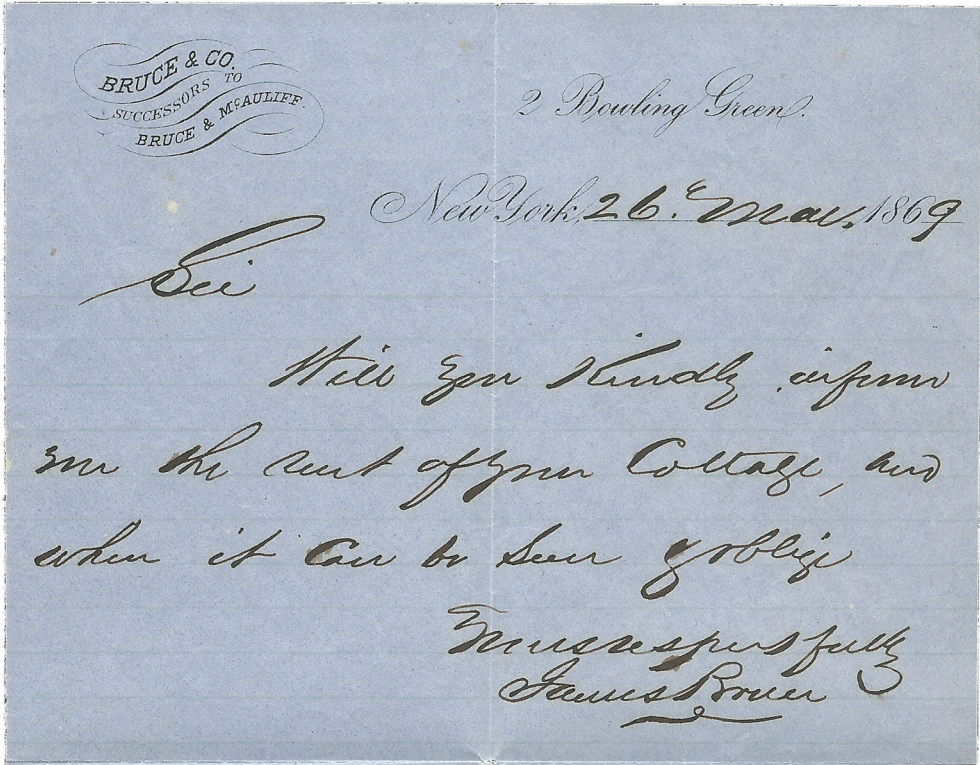 BRUCE & CO.
SUCCESSORS TO
BRUCE & McAULIFF
2 Bowling Green.
New York, 26 Mar. 1869
Sir
Will you Kindly inform
me the rent of your Cottage, and
when it Can be seen & oblige
Yours respectfully
James Bruce